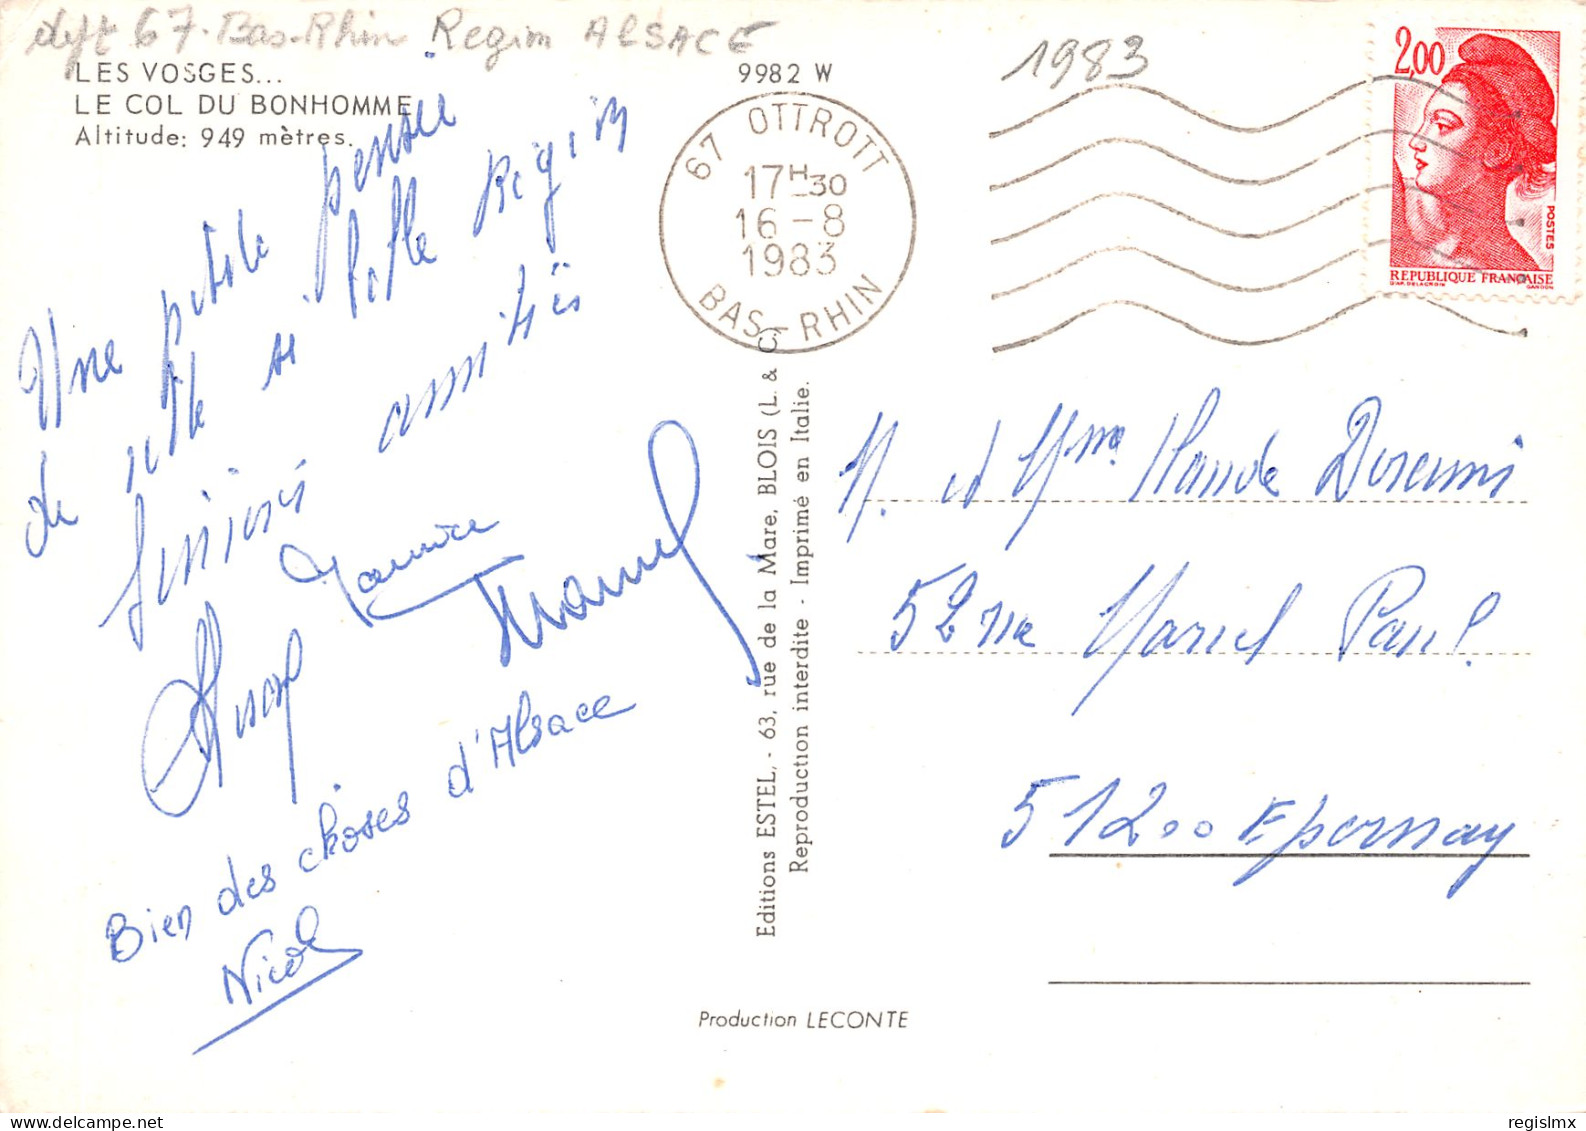 dept 67. Bas-Rhin Region ALSACE
1983
LES VOSGES...
LE COL DU BONHOMME
Altitude: 949 mètres.
9982 W
67 OTTROTT
17H30
16-8
1983
BAS-RHIN
2,00
POSTES
REPUBLIQUE FRANÇAISE
D'AP. DELACROIX GANDON
Une petite pensée
de notre si belle Région
amitiés
Maurice
Bien des choses d'Alsace
Nicole
Editions ESTEL, - 63, rue de la Mare, BLOIS (L. & C.)
Reproduction interdite - Imprimé en Italie.
M. et Mme Claude
52 rue Marcel Paul
51200 Epernay
Production LECONTE
regislmx